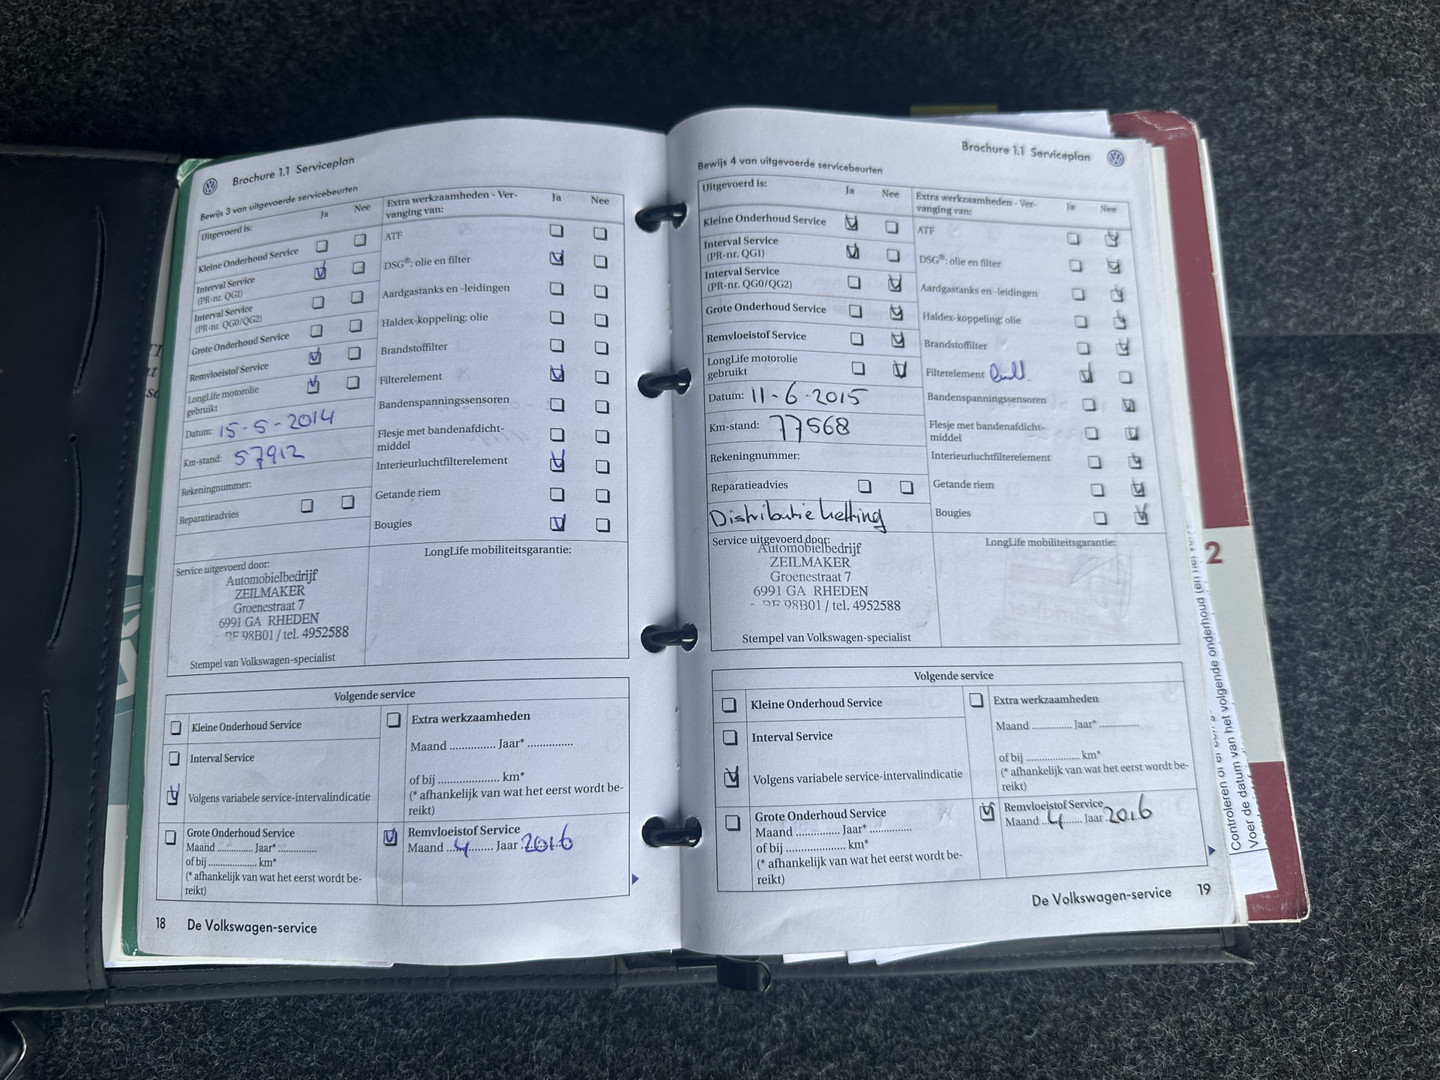 Brochure 1.1 Serviceplan
Bewijs 3 van uitgevoerde servicebeurten
Uitgevoerd is:
Ja
Nee
Kleine Onderhoud Service
Interval Service
(PR-nr. QG1)
Interval Service
(PR-nr. QG0/QG2)
Grote Onderhoud Service
Remvloeistof Service
LongLife motorolie
gebruikt
Datum: 15-5-2014
Km-stand: 57912
Rekeningnummer:
Reparatieadvies
Extra werkzaamheden - Ver-
vanging van:
Ja
Nee
ATF
DSG®: olie en filter
Aardgastanks en -leidingen
Haldex-koppeling: olie
Brandstoffilter
Filterelement
Bandenspanningssensoren
Flesje met bandenafdicht-
middel
Interieurluchtfilterelement
Getande riem
Bougies
Service uitgevoerd door:
Automobielbedrijf
ZEILMAKER
Groenestraat 7
6991 GA RHEDEN
98B01 / tel. 4952588
Stempel van Volkswagen-specialist
LongLife mobiliteitsgarantie:
Volgende service
Kleine Onderhoud Service
Interval Service
Volgens variabele service-intervalindicatie
Grote Onderhoud Service
Maand .............. Jaar* ..............
of bij .................... km*
(* afhankelijk van wat het eerst wordt be-
reikt)
Extra werkzaamheden
Maand ............... Jaar* ...............
of bij .................... km*
(* afhankelijk van wat het eerst wordt be-
reikt)
Remvloeistof Service
Maand 4 Jaar 2016
18 De Volkswagen-service
Brochure 1.1 Serviceplan
Bewijs 4 van uitgevoerde servicebeurten
Uitgevoerd is:
Ja
Nee
Kleine Onderhoud Service
Interval Service
(PR-nr. QG1)
Interval Service
(PR-nr. QG0/QG2)
Grote Onderhoud Service
Remvloeistof Service
LongLife motorolie
gebruikt
Datum: 11-6-2015
Km-stand: 77568
Rekeningnummer:
Reparatieadvies
Distributie ketting
Extra werkzaamheden - Ver-
vanging van:
Ja
Nee
ATF
DSG®: olie en filter
Aardgastanks en -leidingen
Haldex-koppeling: olie
Brandstoffilter
Filterelement
Bandenspanningssensoren
Flesje met bandenafdicht-
middel
Interieurluchtfilterelement
Getande riem
Bougies
Service uitgevoerd door:
Automobielbedrijf
ZEILMAKER
Groenestraat 7
6991 GA RHEDEN
98B01 / tel. 4952588
Stempel van Volkswagen-specialist
LongLife mobiliteitsgarantie:
Volgende service
Kleine Onderhoud Service
Interval Service
Volgens variabele service-intervalindicatie
Grote Onderhoud Service
Maand .............. Jaar* ..............
of bij .................... km*
(* afhankelijk van wat het eerst wordt be-
reikt)
Extra werkzaamheden
Maand .............. Jaar* ..............
of bij .................... km*
(* afhankelijk van wat het eerst wordt be-
reikt)
Remvloeistof Service
Maand 4 Jaar 2016
De Volkswagen-service 19
2
Voer de datum van het volgende onderhoud (en het